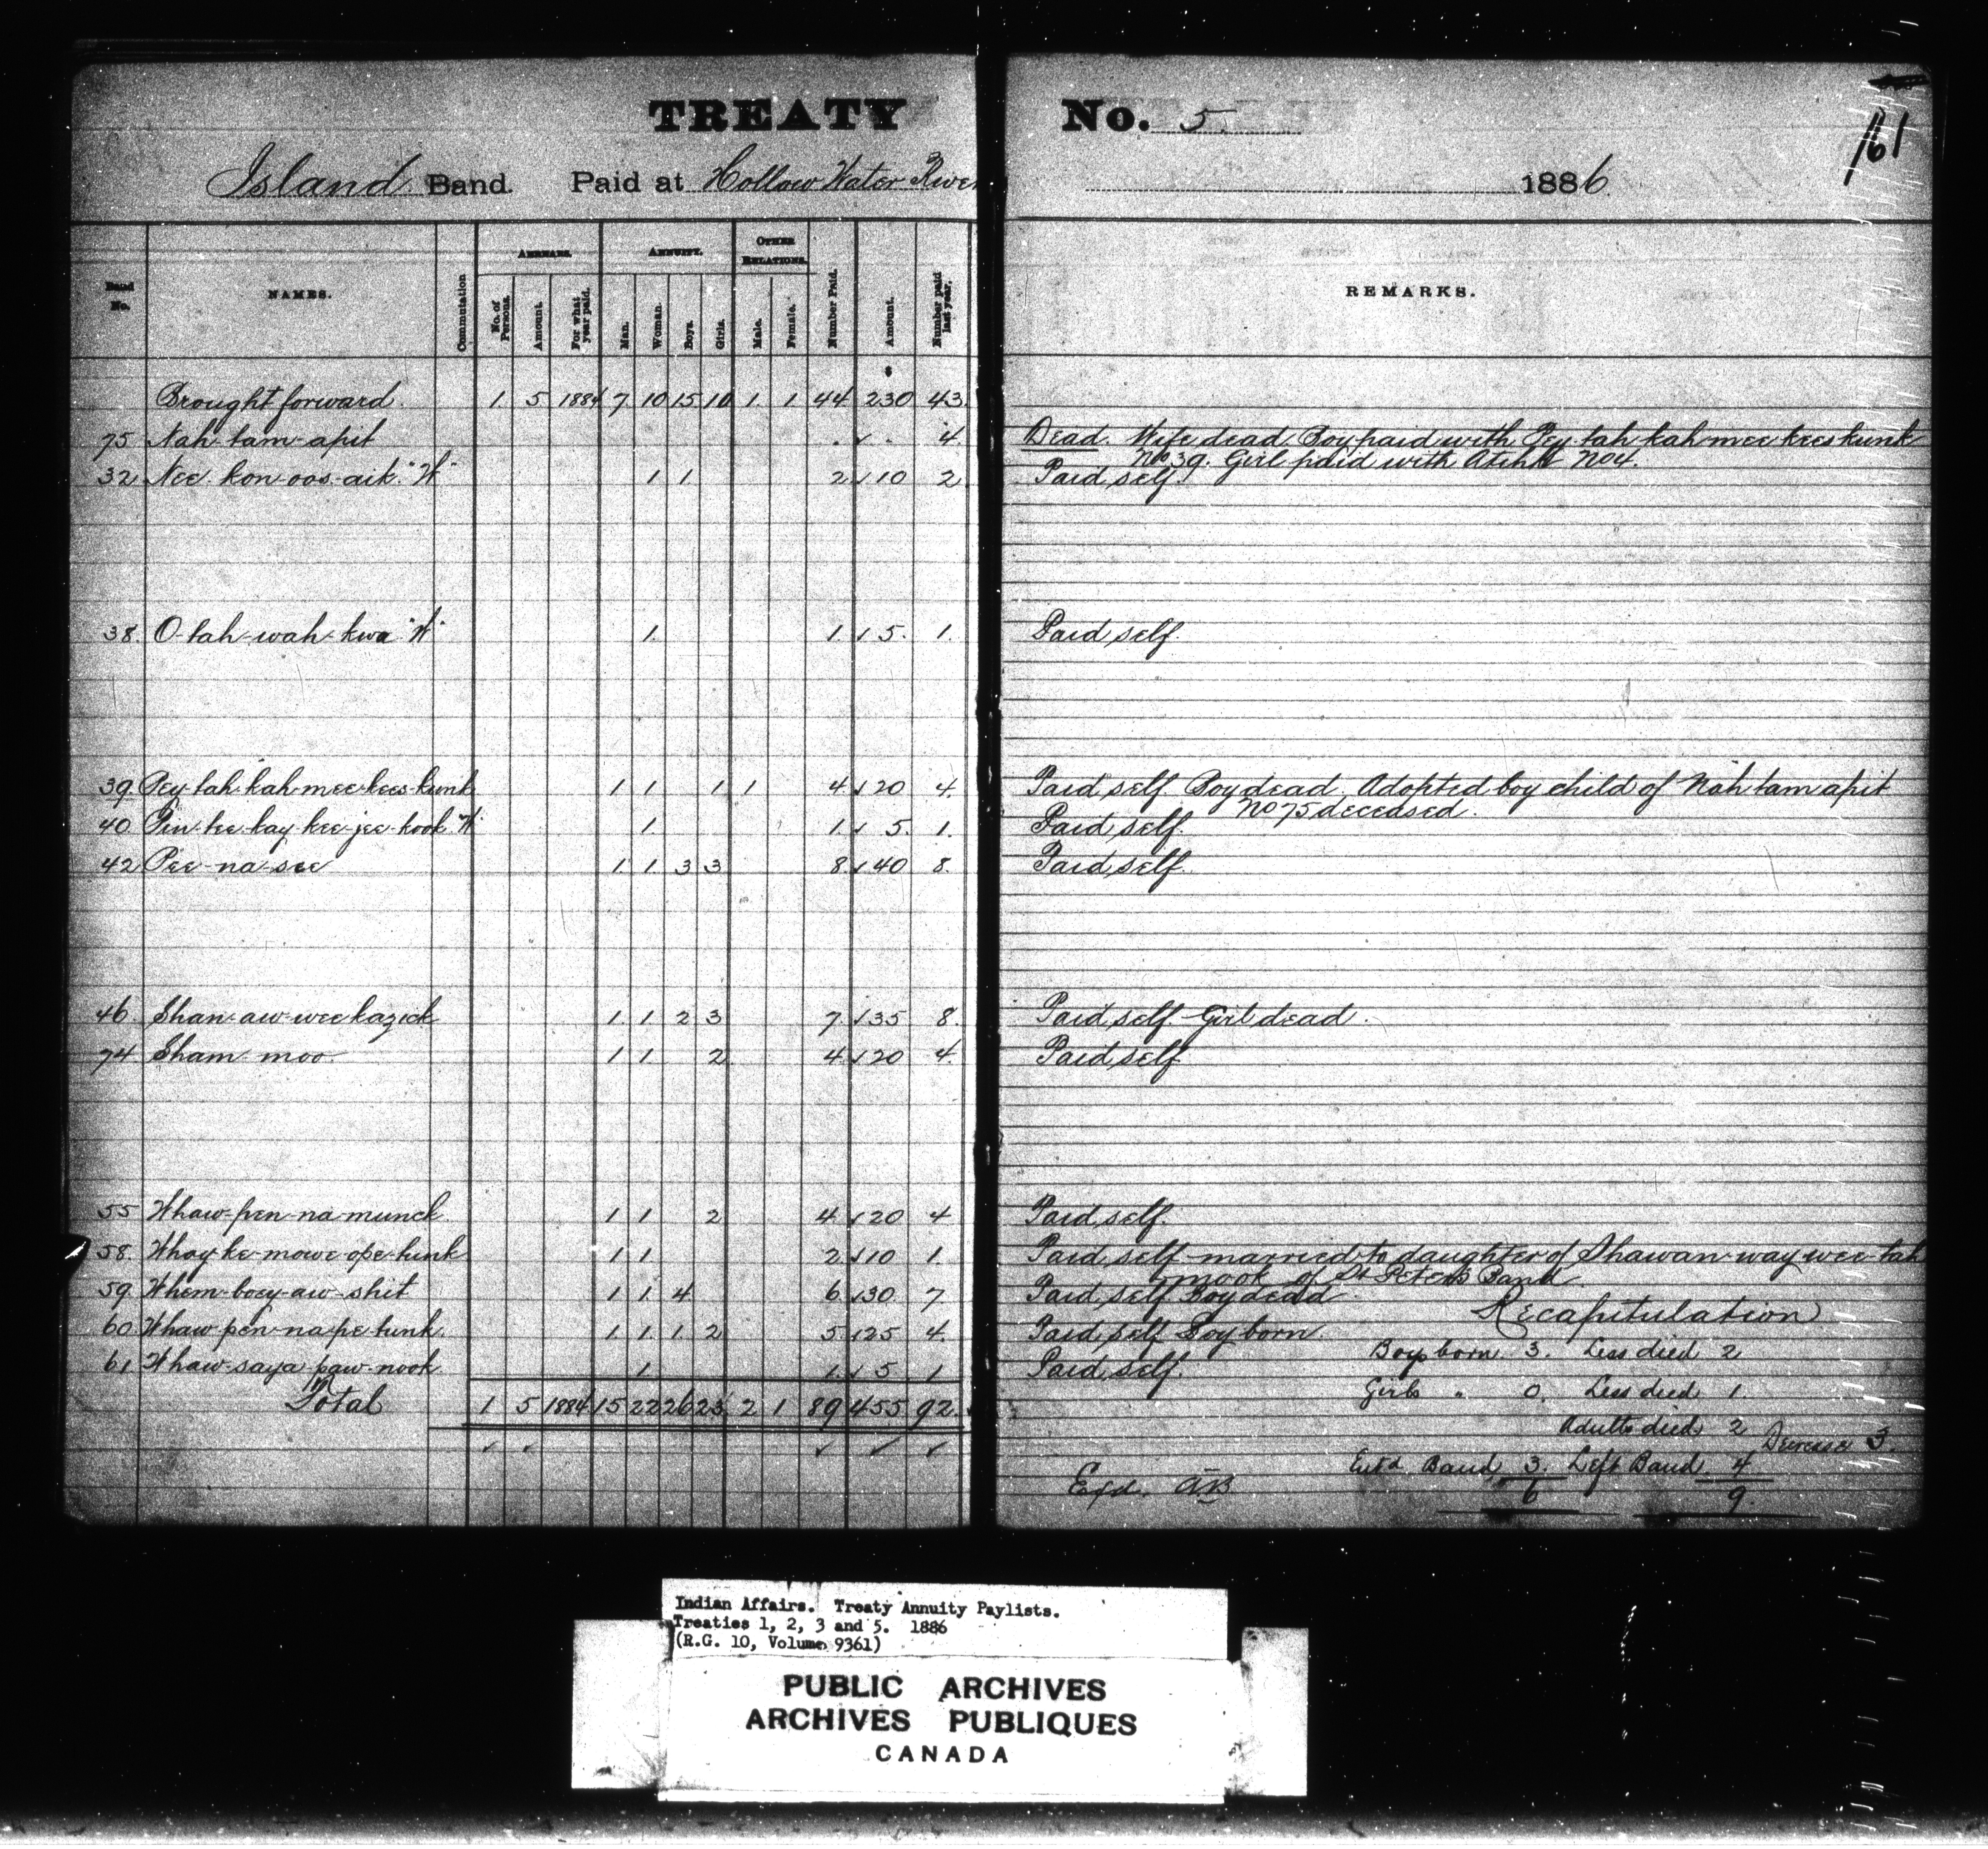 TREATY No. 5.
161
Island Band. Paid at Hollow Water River 1886
Band No. NAMES. Commutation ARREARS. No. of Persons. Amount. For what year paid. ANNUITY. Man. Woman. Boys. Girls. OTHER RELATIONS. Male. Female. Number Paid. Amount. Number paid last year. REMARKS.
$
Brought forward. 1. 5 1884 7 10 15 10 1. 1 44 230 43.
75 Nah-tam-apit 4 Dead. Wife dead Boy paid with Pey-tah-kah-mee-kees-kunk
No 39. Girl paid with No 4.
32 Nee-kon-oos-aik. "W" 1 1 2 ✓ 10 2 Paid self.
38. O-tah-wah-kwa "W" 1. 1 ✓ 5. 1. Paid self.
39. Pey-tah-kah-mee-kees-kunk 1 1 1 1 4 ✓ 20 4. Paid self. Boy dead. Adopted boy child of Nah tam apit
No 75 deceased.
40 Pin-tee-kay-kee-jee-kook "W" 1. 1. ✓ 5. 1. Paid self.
42 Pee-na-see 1. 1. 3 3 8. ✓ 40 8. Paid self.
46 Shan-aw-wee kazick 1. 1. 2 3 7 ✓ 35 8. Paid self. Girl dead.
74 Sham moo. 1 1. 2 4 ✓ 20 4. Paid self.
55 Whaw-pen-na-munck. 1 1. 2 4 ✓ 20 4 Paid self.
58. Whay-ke-mowe-ope-tunk 1 1. 2 ✓ 10 1. Paid self married to daughter of Shawan-way-wee-tah
mook of St Peters Band
59 Whem-boey-aw-shit 1 1. 4 6 ✓ 30 7 Paid self Boy dead.
Recapitulation
60. Whaw-pen-na-pe-tunk. 1 1. 1. 2 5. ✓ 25 4. Paid self Boy born.
Boys born. 3. Less died 2
61 Whaw-saya-paw-nook 1. 1. ✓ 5 1 Paid self.
Girls " 0. Less died 1.
Total 1 5 1884 15 22 26 23 2 1 89 455 92.
Adults died 2 Decrease 3.
✓ ✓ ✓ ✓ ✓
Ent'd Band 3. Left Band 4
Exd. AB
6 9.
Indian Affairs. Treaty Annuity Paylists.
Treaties 1, 2, 3 and 5. 1886
(R.G. 10, Volume 9361)
PUBLIC ARCHIVES
ARCHIVES PUBLIQUES
CANADA